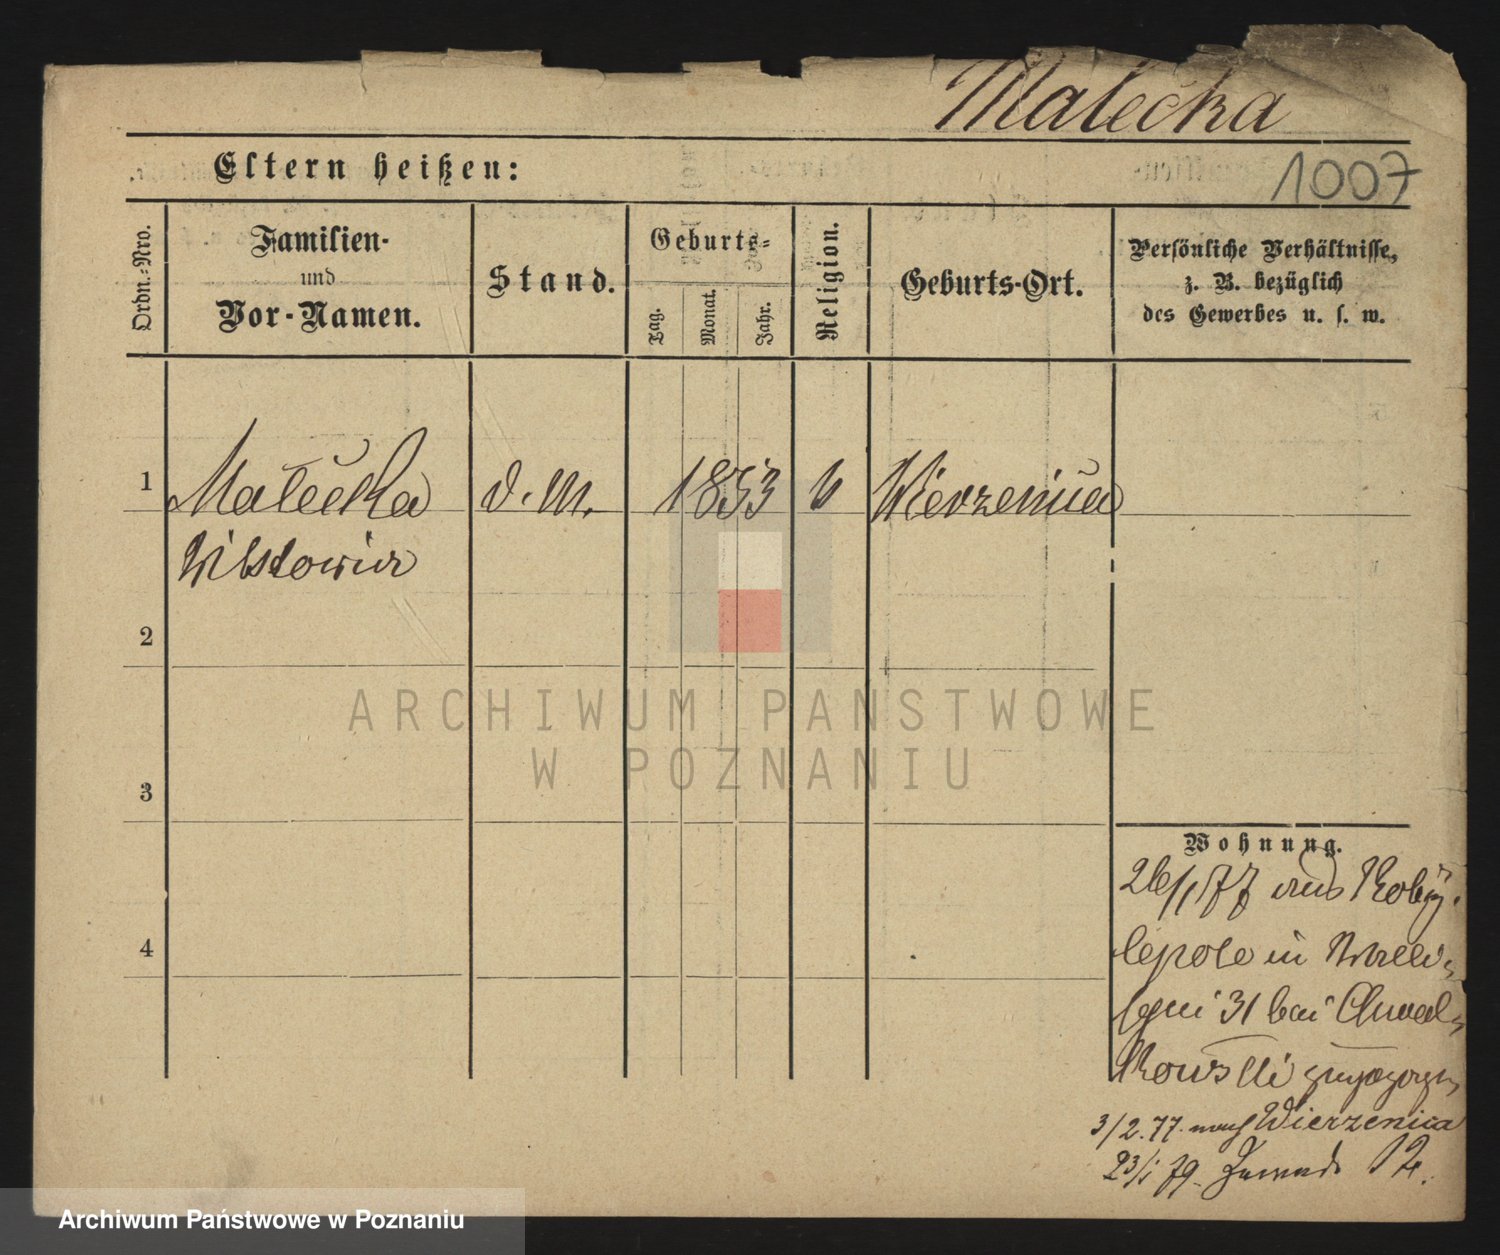 Małecka
1007
Eltern heißen:
Ordn.-Nro.
Familien-
und
Vor-Namen.
Stand.
Geburts-
Tag.
Monat.
Jahr.
Religion.
Geburts-Ort.
Persönliche Verhältnisse,
z. B. bezüglich
des Gewerbes u. s. w.
1 Małecka d. M. 1853 k Wierzenica
Wiktoria
2
3
4
Wohnung.
26/1 77 aus Koby-
lepole in
31 bei Chwał-
kowski zugezogen
3/2. 77. nach Wierzenica
23/1 79. Zawade 12.
ARCHIWUM PAŃSTWOWE
W POZNANIU
Archiwum Państwowe w Poznaniu